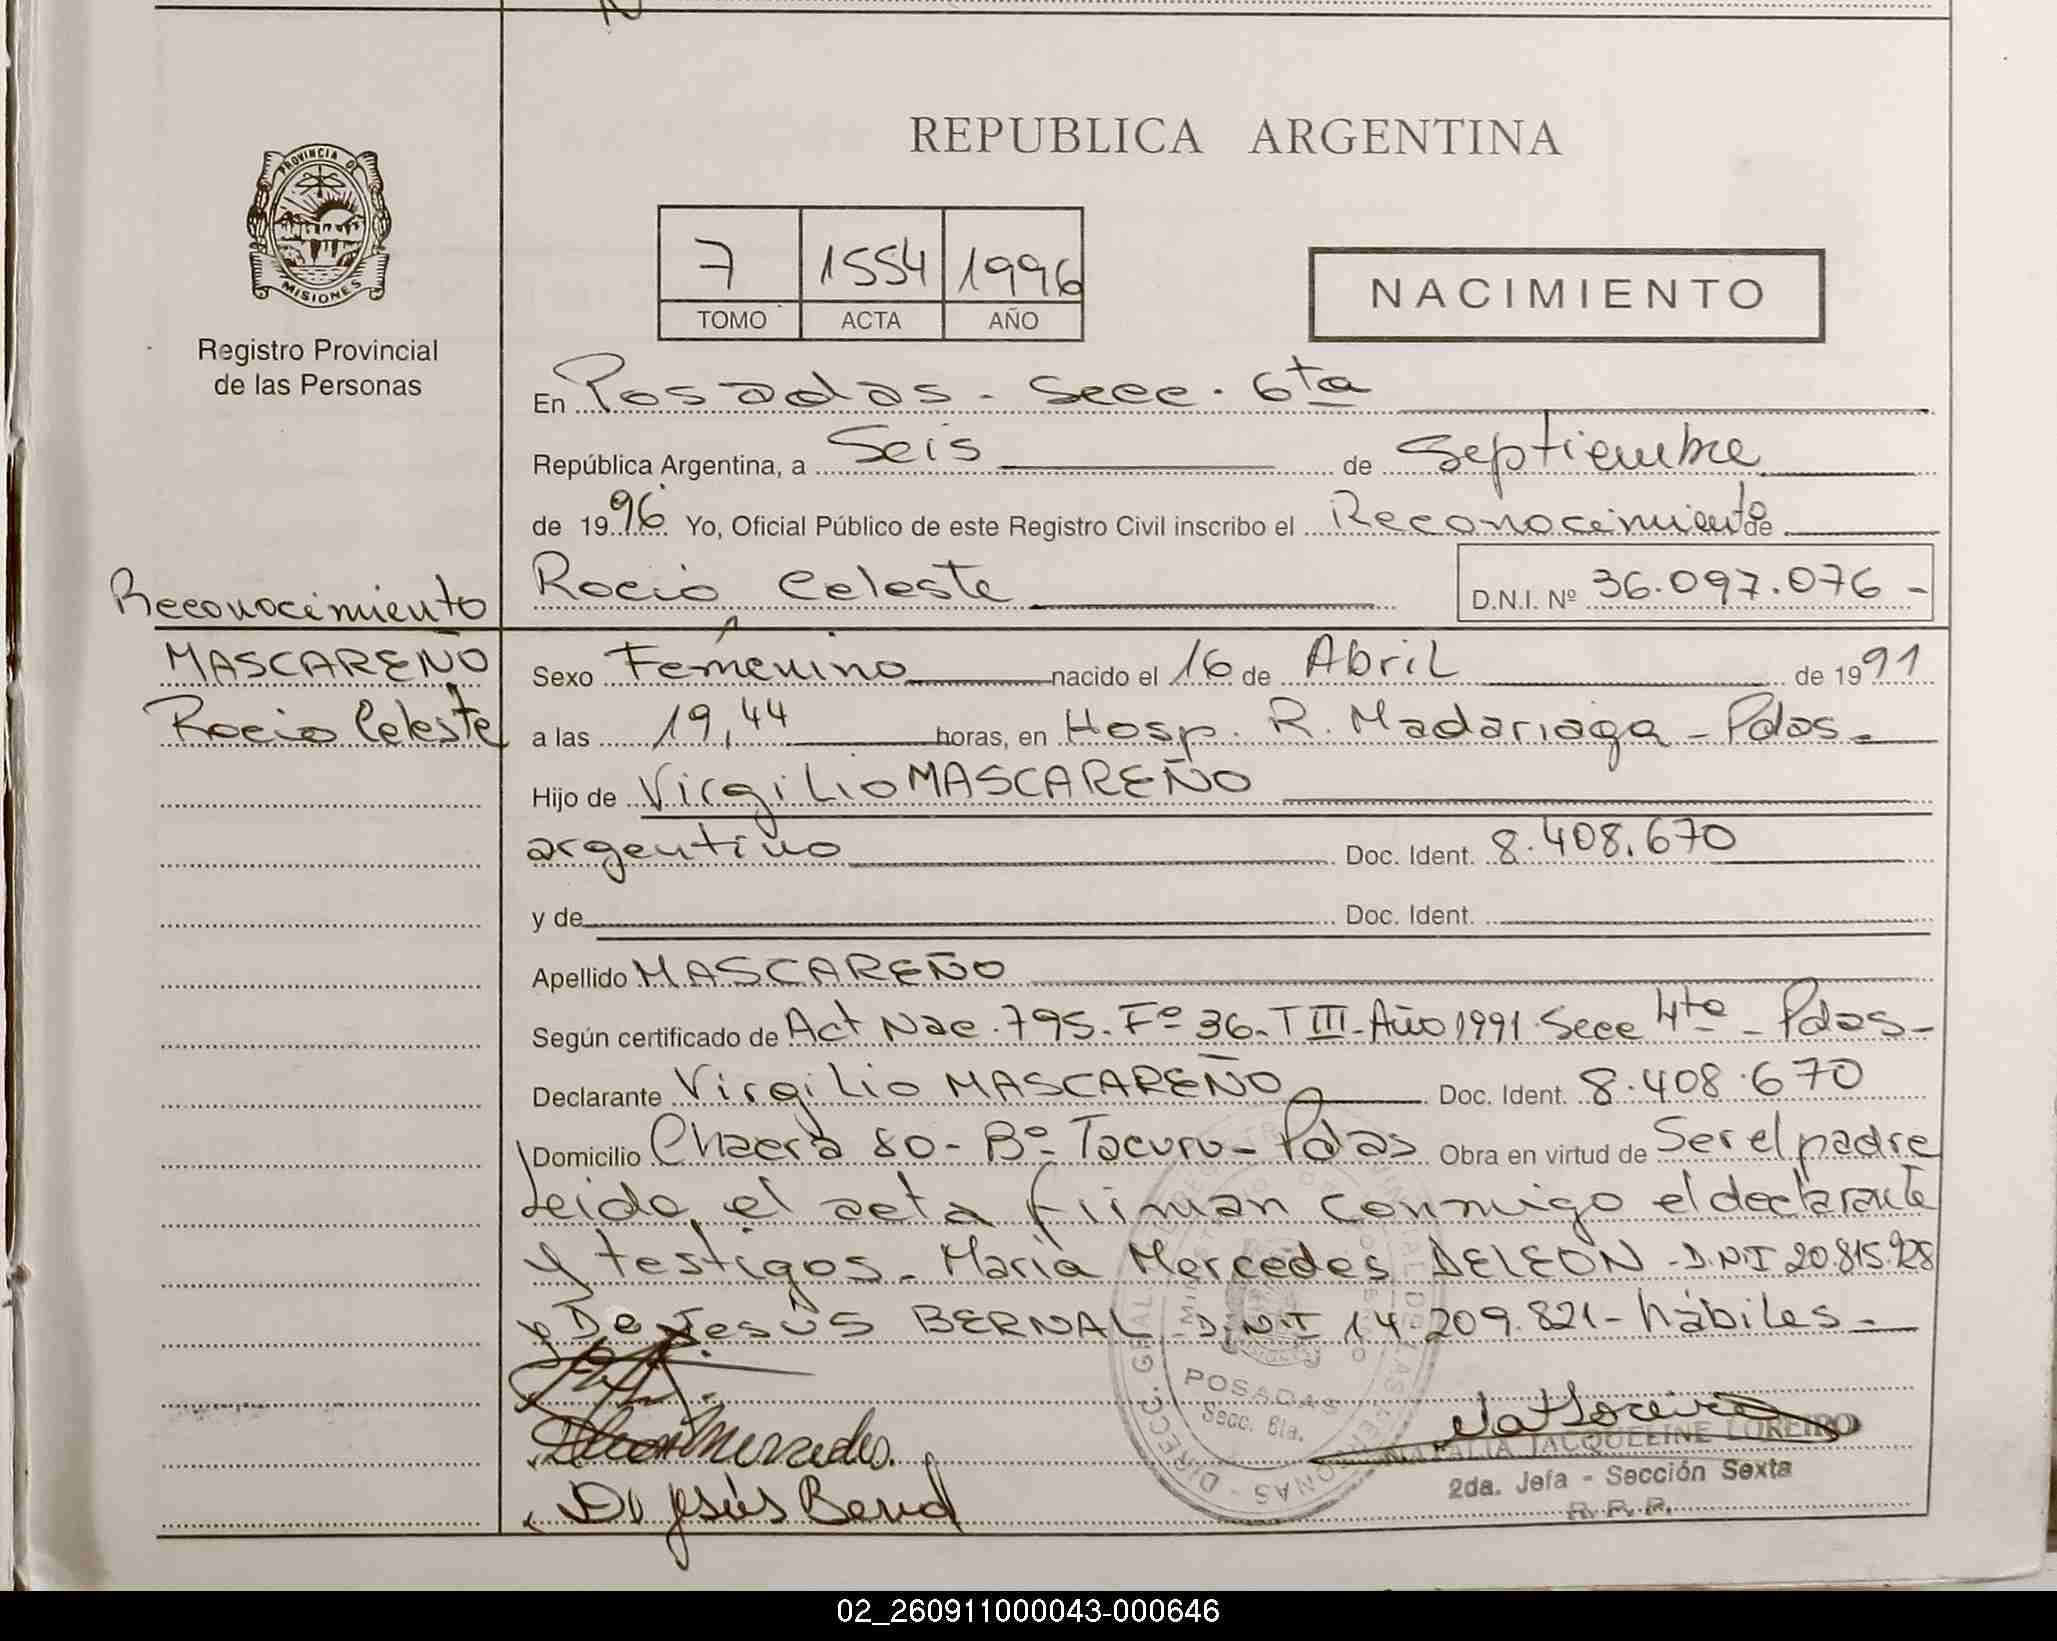 REPUBLICA ARGENTINA
PROVINCIA DE
MISIONES
Registro Provincial
de las Personas
7 1554 1996
TOMO ACTA AÑO
NACIMIENTO
En Posadas - Secc. 6ta
República Argentina, a Seis de Septiembre
de 1996 Yo, Oficial Público de este Registro Civil inscribo el Reconocimiento de
Rocio Celeste D.N.I. Nº 36.097.076 -
Reconocimiento
MASCAREÑO
Rocio Celeste
Sexo Femenino nacido el 16 de Abril de 1991
a las 19,44 horas, en Hosp. R. Madariaga - Pdas.
Hijo de Virgilio MASCAREÑO
argentino Doc. Ident. 8.408.670
y de Doc. Ident.
Apellido MASCAREÑO
Según certificado de Act Nac. 795. Fº 36 - T III - Año 1991 - Secc 4ta - Pdas -
Declarante Virgilio MASCAREÑO Doc. Ident. 8.408.670
Domicilio Chacra 80 - Bº Tacuru - Pdas Obra en virtud de Ser el padre
Leida el acta firman conmigo el declarante
y testigos - Maria Mercedes DELEON - D.N.I 20.815.928
y De Jesús BERNAL - D.N.I 14.209.821 - hábiles -
POSADAS
Secc. 6ta.
Mercedes
De Jesús Bernal
NATALIA JACQUELINE LOREIRO
2da. Jefa - Sección Sexta
R. P. P.
02_260911000043-000646